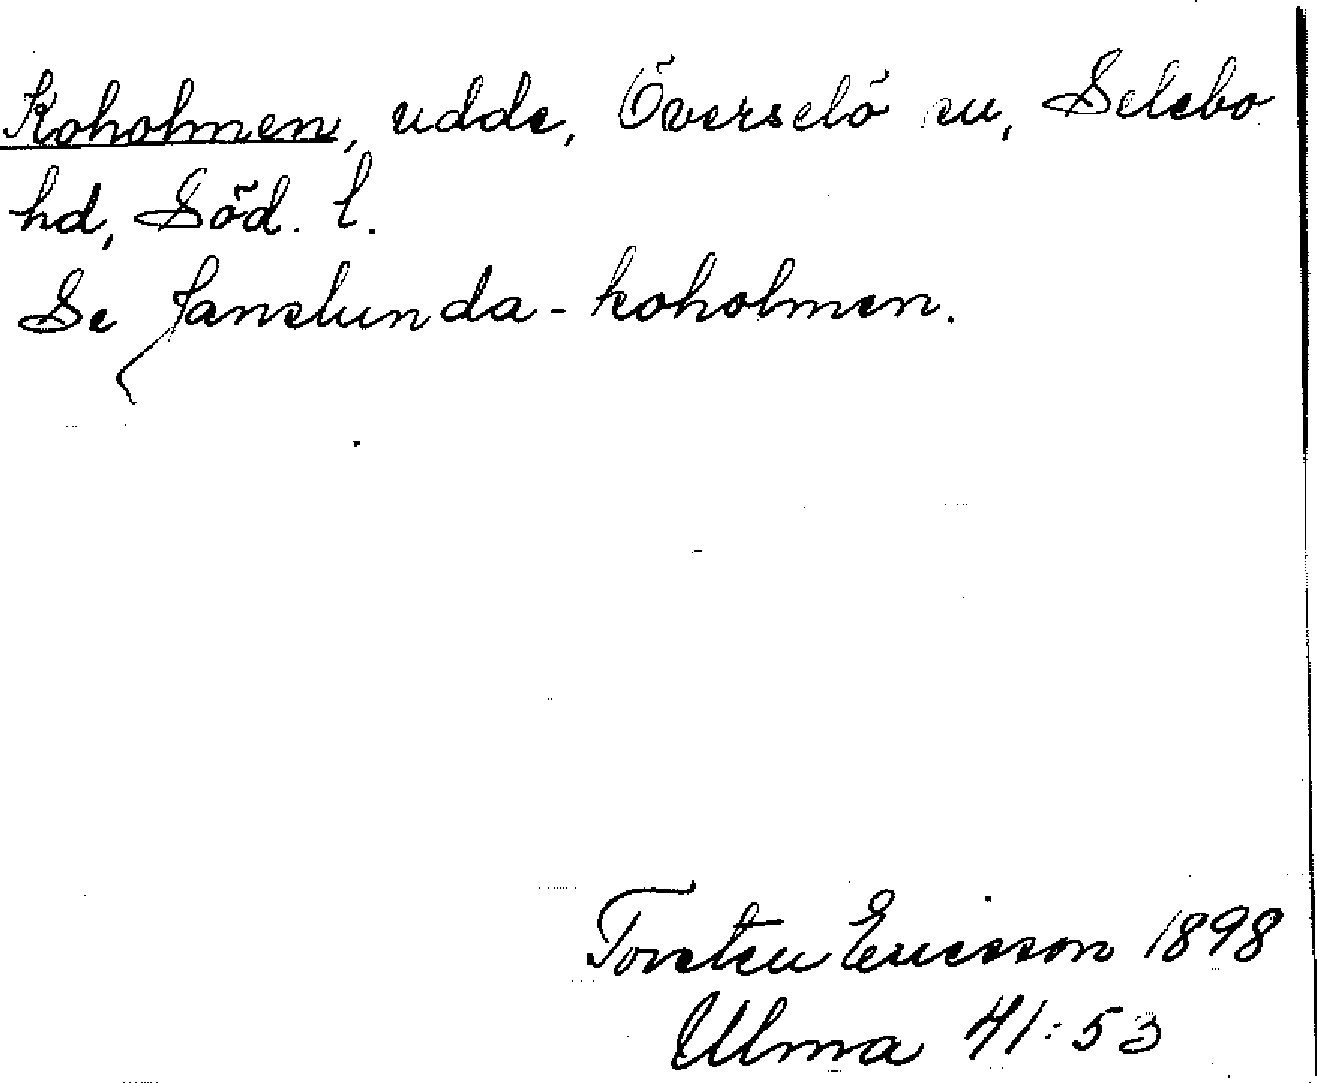 Koholmen, udde, Överselö sn, Selebo
hd, Söd. l.
Se Janslunda-koholmen.
Torsten Ericsson 1898
Ulma 41:53